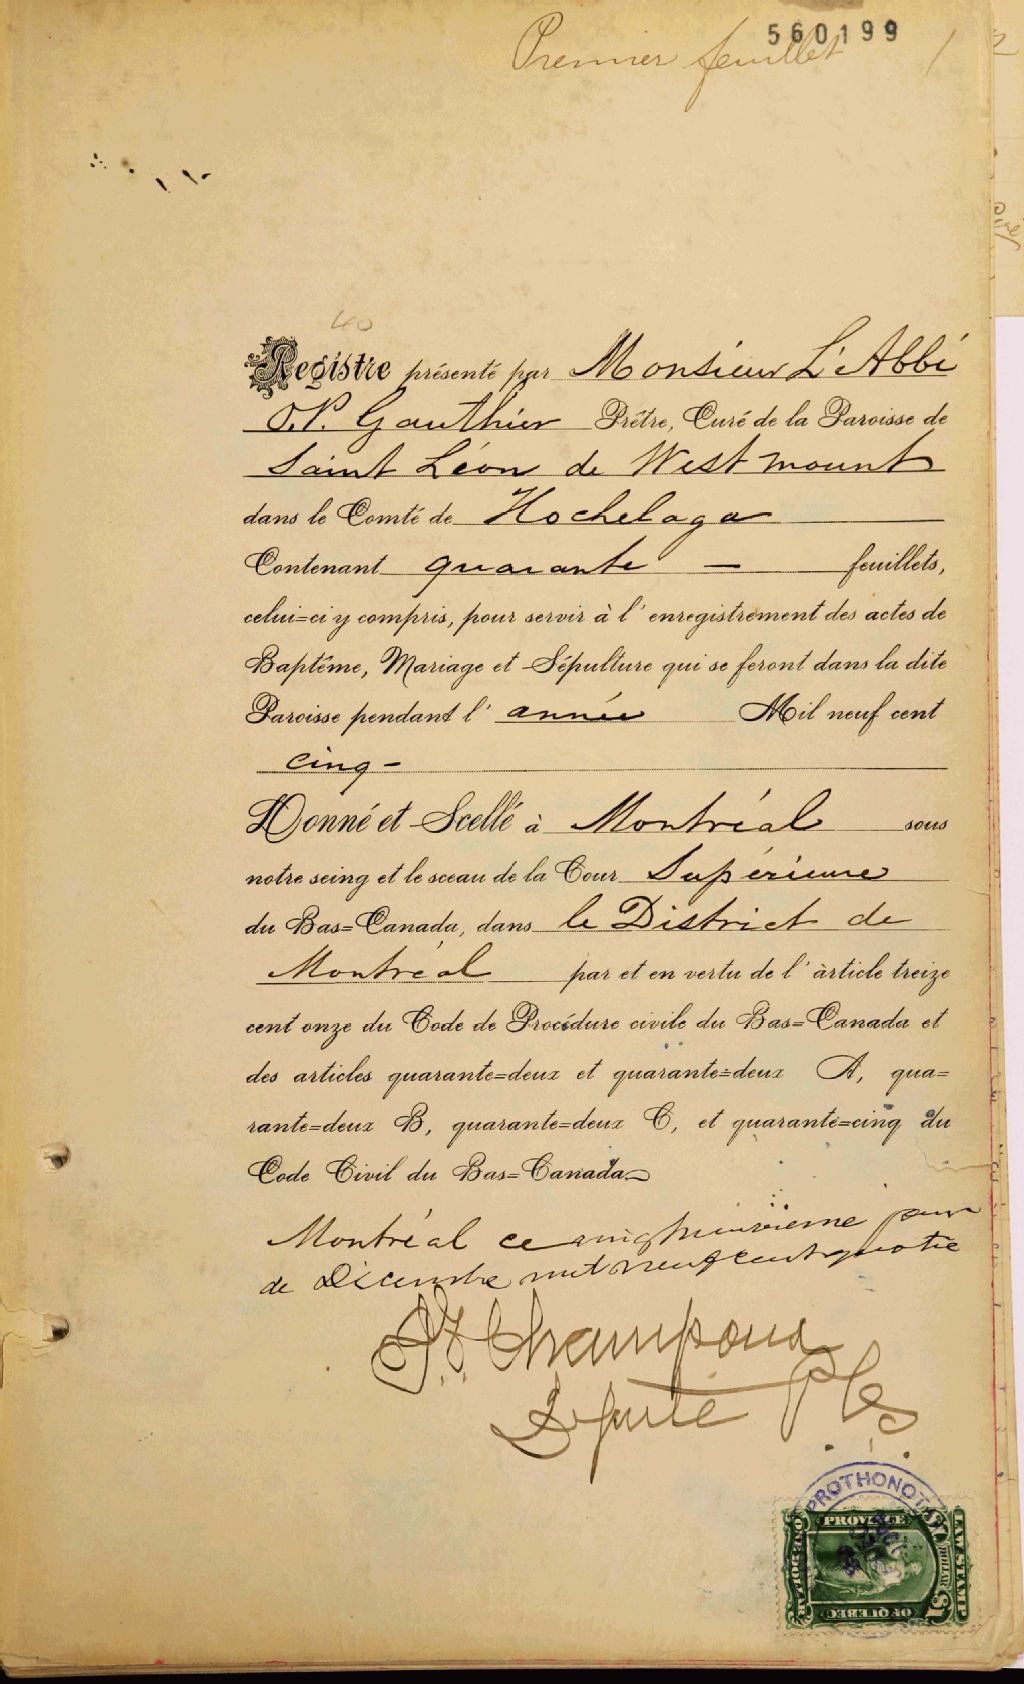 560199
Premier feuillet 1
40
Registre présenté par Monsieur L'Abbé
O.P. Gauthier Prêtre, Curé de la Paroisse de
Saint Léon de Westmount
dans le Comté de Hochelaga
Contenant quarante — feuillets,
celui=ci y compris, pour servir à l'enregistrement des actes de
Baptême, Mariage et Sépulture qui se feront dans la dite
Paroisse pendant l'année Mil neuf cent
cinq -
Donné et Scellé à Montréal sous
notre seing et le sceau de la Cour Supérieure
du Bas=Canada, dans le District de
Montréal par et en vertu de l'àrticle treize
cent onze du Code de Procédure civile du Bas=Canada et
des articles quarante=deux et quarante=deux A, qua=
rante=deux B, quarante=deux C, et quarante=cinq du
Code Civil du Bas=Canada
Montréal ce jour
de Décembre mil neuf cent quatre
Champoux
Député P C S
PROTHONOTARY
PROVINCE
OF QUEBEC
LAW STAMP
ONE DOLLAR
DOLLAR
$1